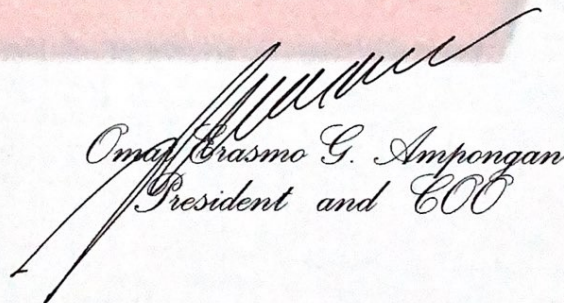 Omar Erasmo G. Ampongan
President and COO